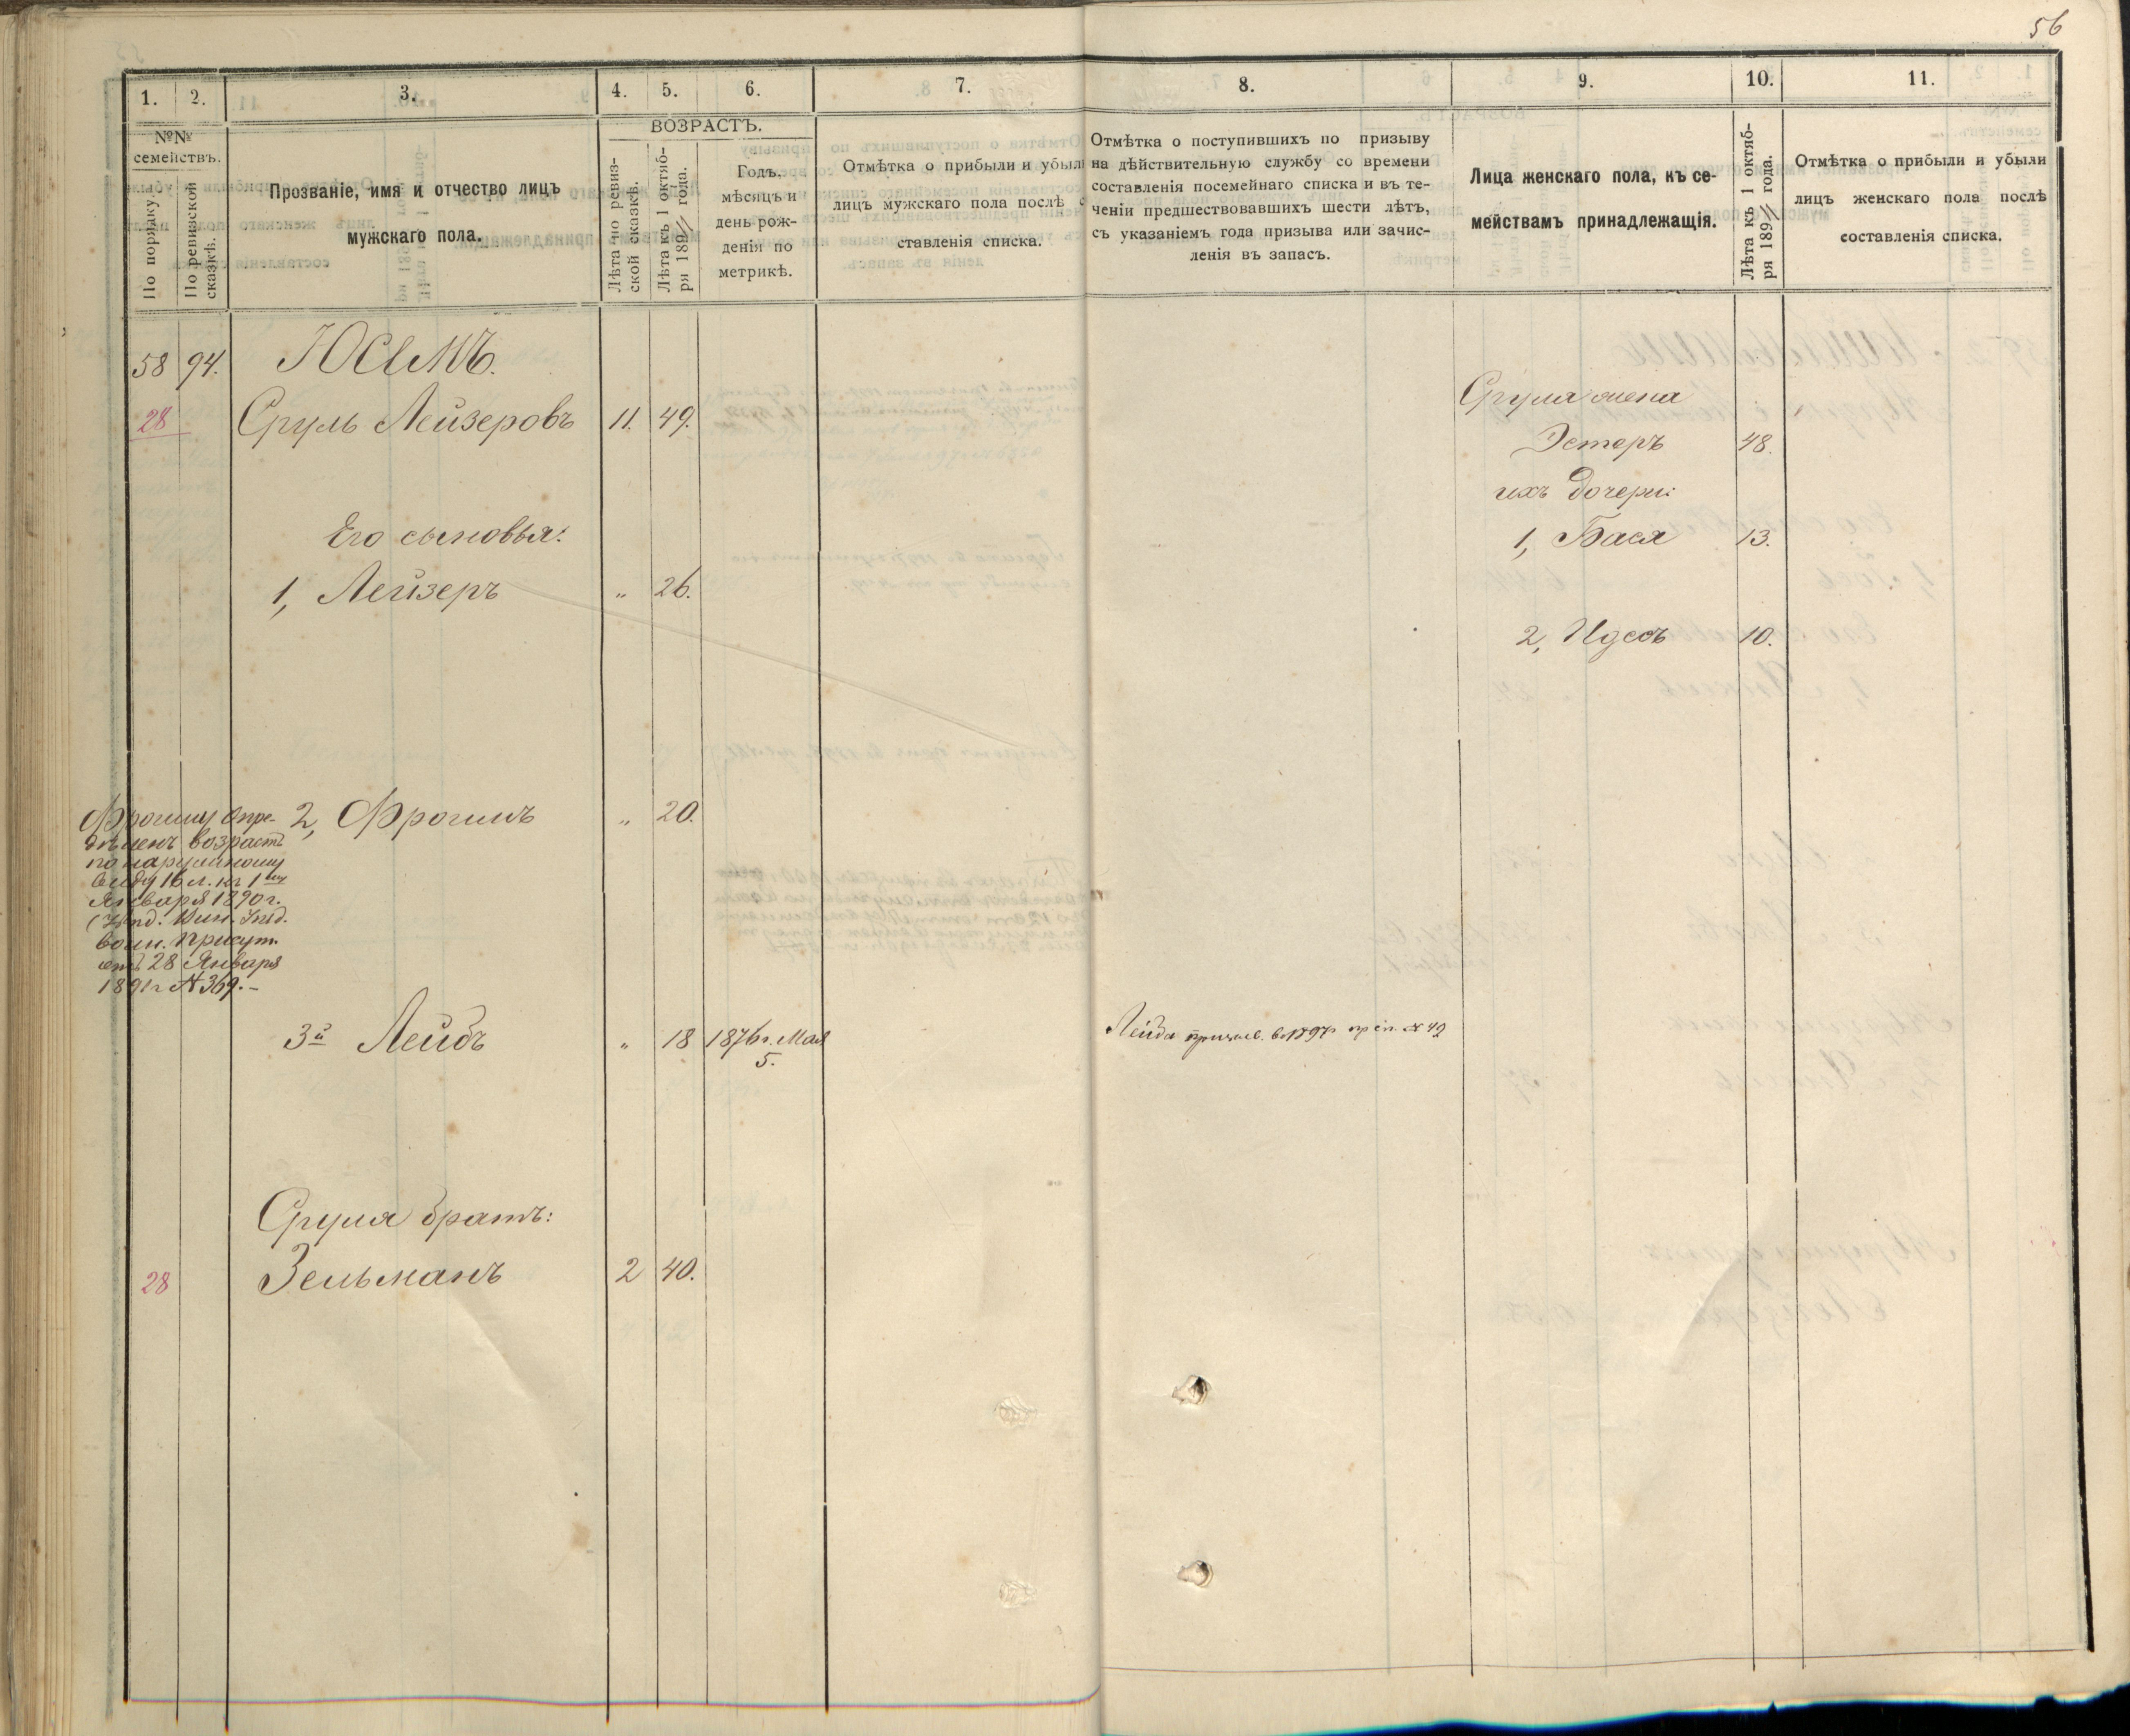 56
1. 2. 3. 4. 5. 6. 7. 8. 9. 10. 11.
№№
семействъ.
По порядку.
По ревизской
сказкѣ.
Прозваніе, имя и отчество лицъ
мужскаго пола.
ВОЗРАСТЪ.
Лѣта по ревиз-
ской сказкѣ.
Лѣта къ 1 октяб-
ря 189 года.
Годъ,
мѣсяцъ и
день рож-
денія по
метрикѣ.
Отмѣтка о прибыли и убыли
лицъ мужскаго пола послѣ с
ставленія списка.
Отмѣтка о поступившихъ по призыву
на дѣйствительную службу со времени
составленія посемейнаго списка и въ те-
ченіи предшествовавшихъ шести лѣтъ,
съ указаніемъ года призыва или зачис-
ленія въ запасъ.
Лица женскаго пола, къ се-
мействамъ принадлежащія.
Лѣта къ 1 октяб-
ря 189 года.
Отмѣтка о прибыли и убыли
лицъ женскаго пола послѣ
составленія списка.
58 94. Юсимъ.
28 Сруль Лейзеровъ 11. 49.
Сруля жена
Эстеръ 48.
ихъ дочери:
Его сыновья:
1, Бася 13.
1, Лейзеръ " 26.
2, Идесъ 10.
2, Фроимъ " 20.
Фроиму опре-
дѣленъ возрастъ
по наружному
виду 16 л. къ 1му
Января 1890 г.
воин. присут.
отъ 28 Января
1891 г. № 369.-
3й Лейбъ " 18 1876 г. Мая
5.
Лейба призыв. в 1897 № 42
Сруля братъ:
28 Зельманъ 2 40.